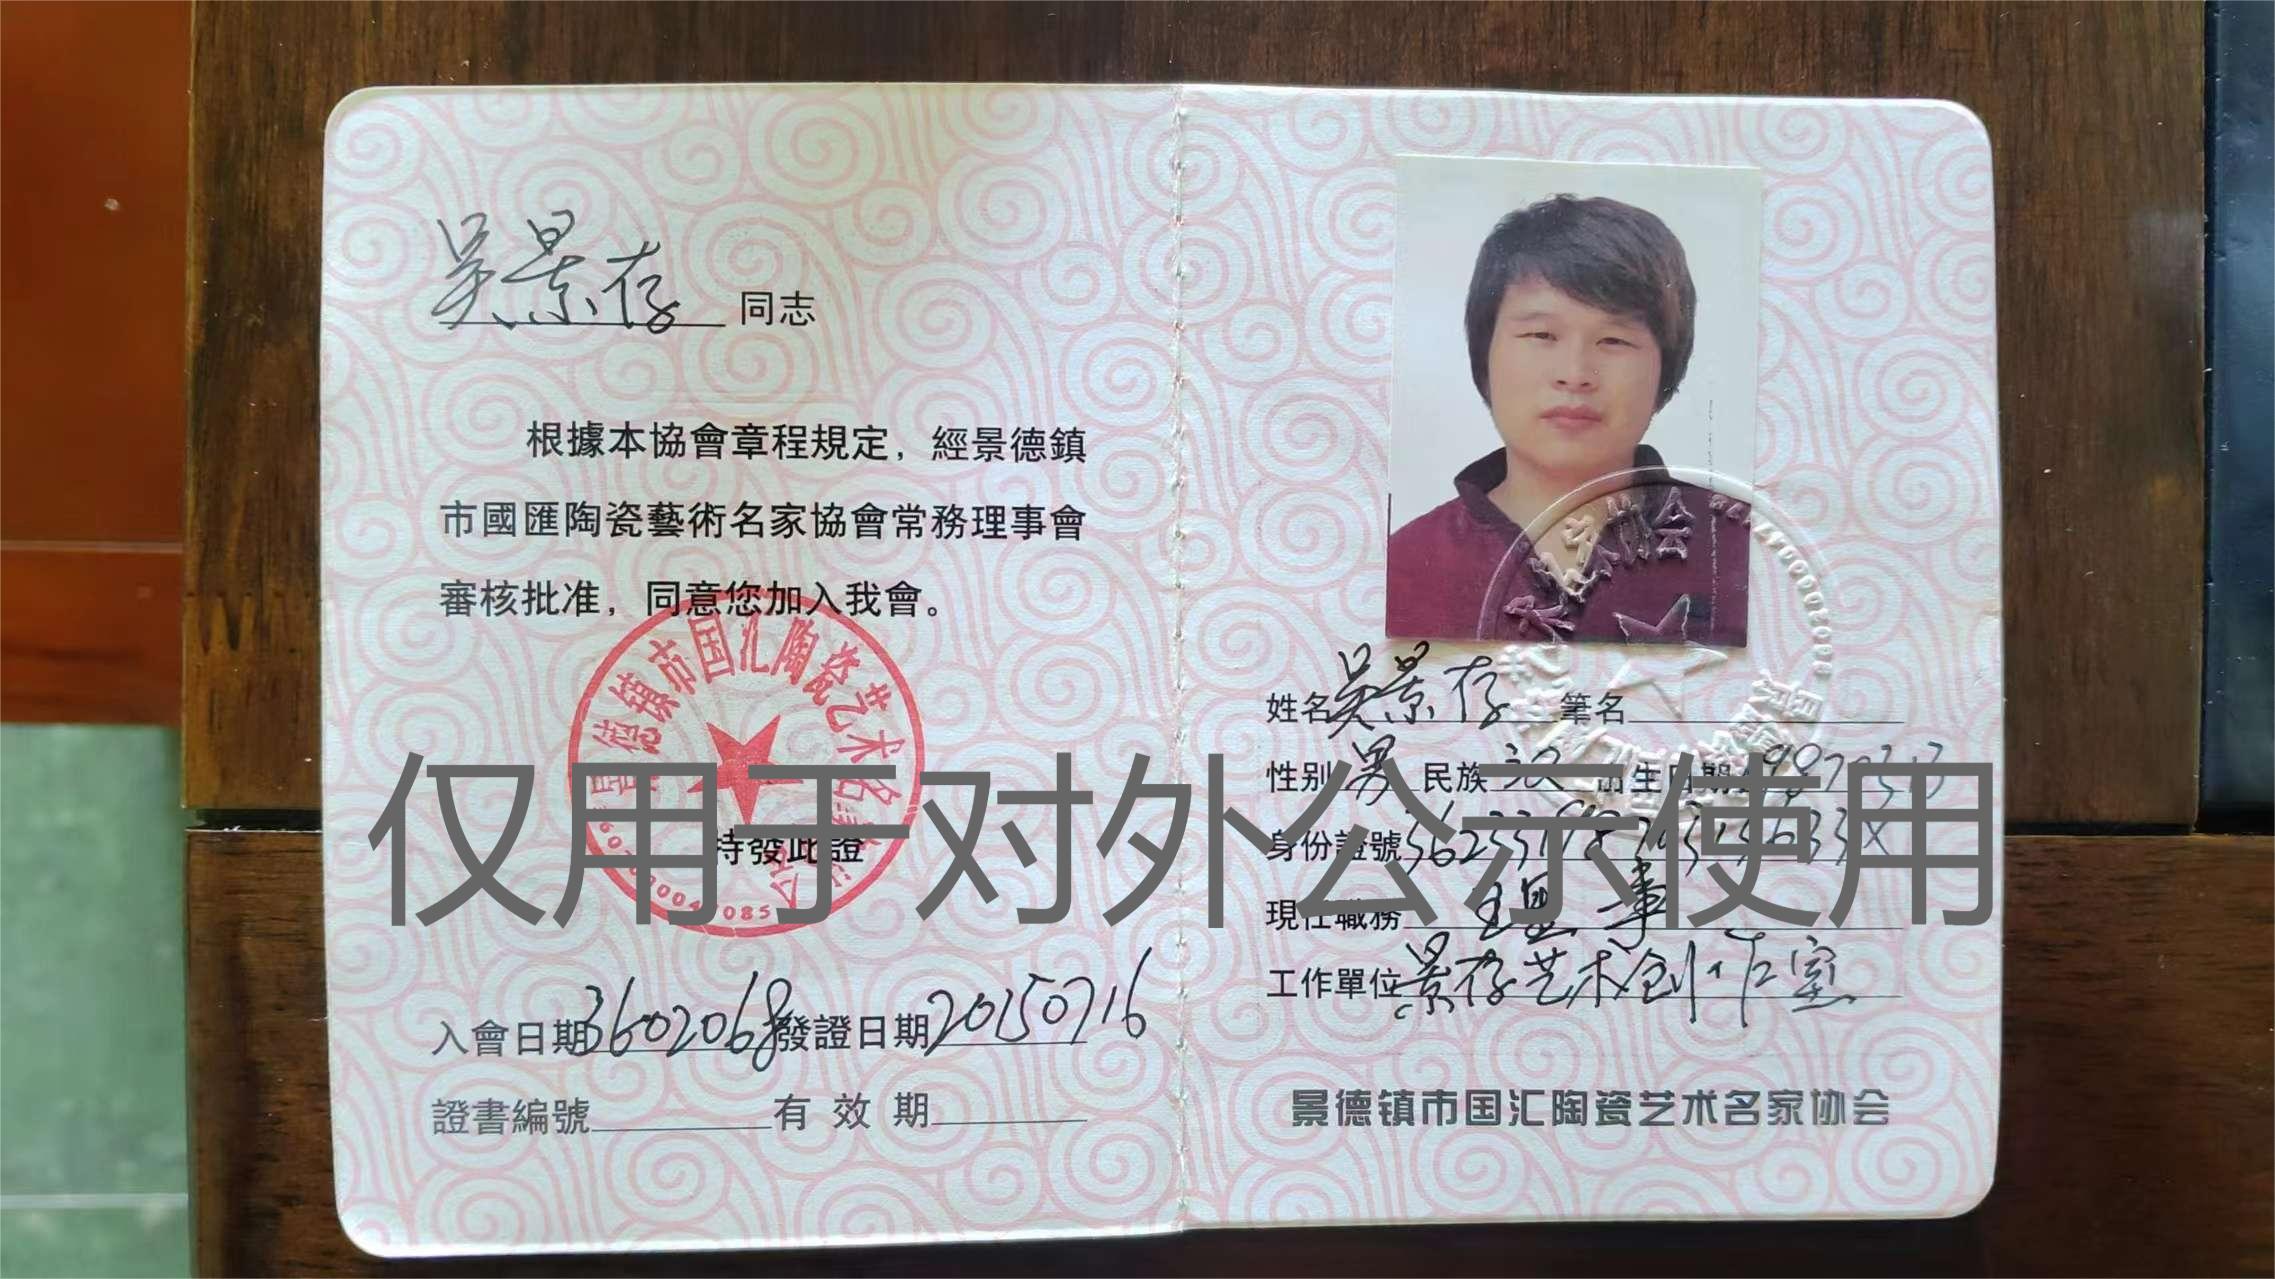 吴景存 同志
根據本協會章程規定，經景德鎮
市國匯陶瓷藝術名家協會常務理事會
審核批准，同意您加入我會。
景德镇市国汇陶瓷艺术名家协会
特發此證
入會日期3602068發證日期20150716
證書編號 有效期
姓名吴景存 筆名
性别男 民族汉 出生日期
身份證號
現任職務 理事
工作單位景存艺术创作室
景德镇市国汇陶瓷艺术名家协会
仅用于对外公示使用